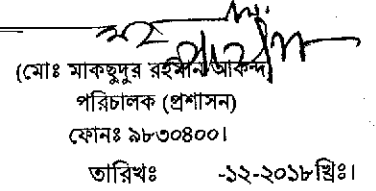 (মোঃ মাকছুদুর রহমান আকন্দ)
পরিচালক (প্রশাসন)
ফোনঃ ৯৮৩০৪০০।
তারিখঃ -১২-২০১৮খ্রিঃ।